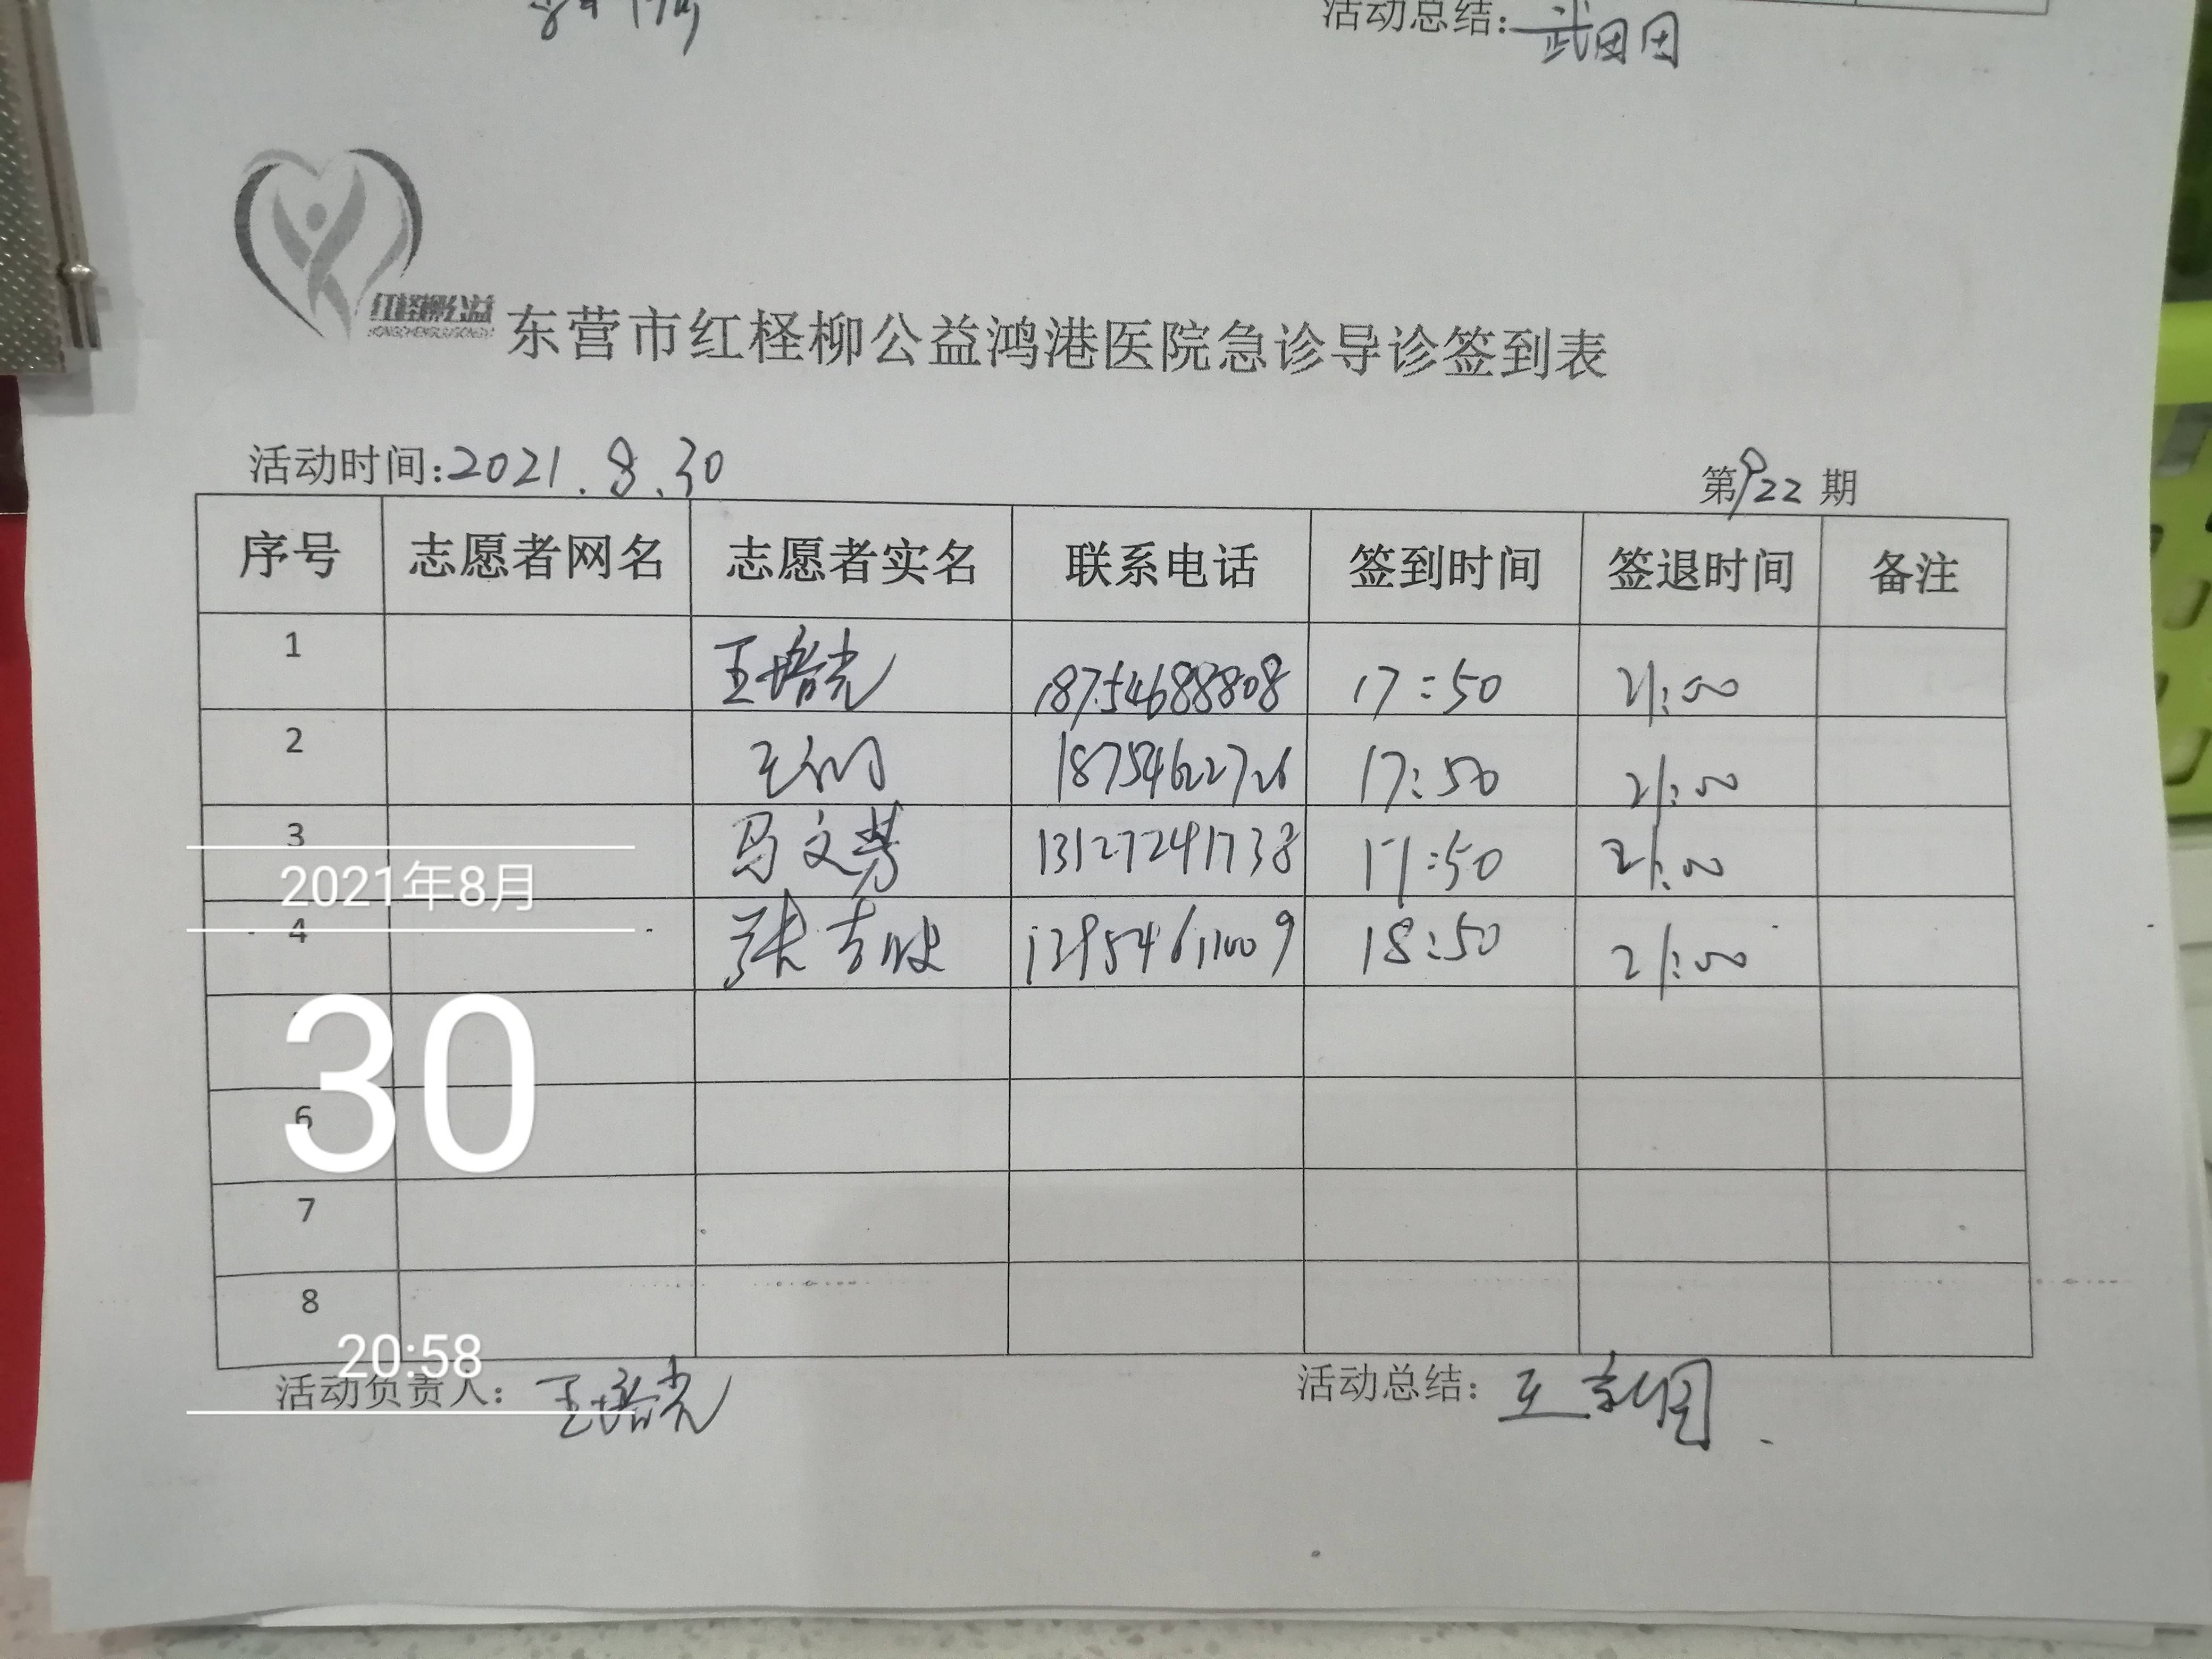 活动总结：武团团
红柽柳公益
HONGCHENGLIUGONGYI
东营市红柽柳公益鸿港医院急诊导诊签到表
活动时间：2021.8.30 第922期
序号 志愿者网名 志愿者实名 联系电话 签到时间 签退时间 备注
1 王培光 18754688808 17:50 21:00
2 18754622726 17:50 21:00
3 马文芳 13127241738 17:50 21:00
2021年8月
4 张 18:50 21:00
30
6
7
8
20:58
活动负责人：王培光 活动总结：王